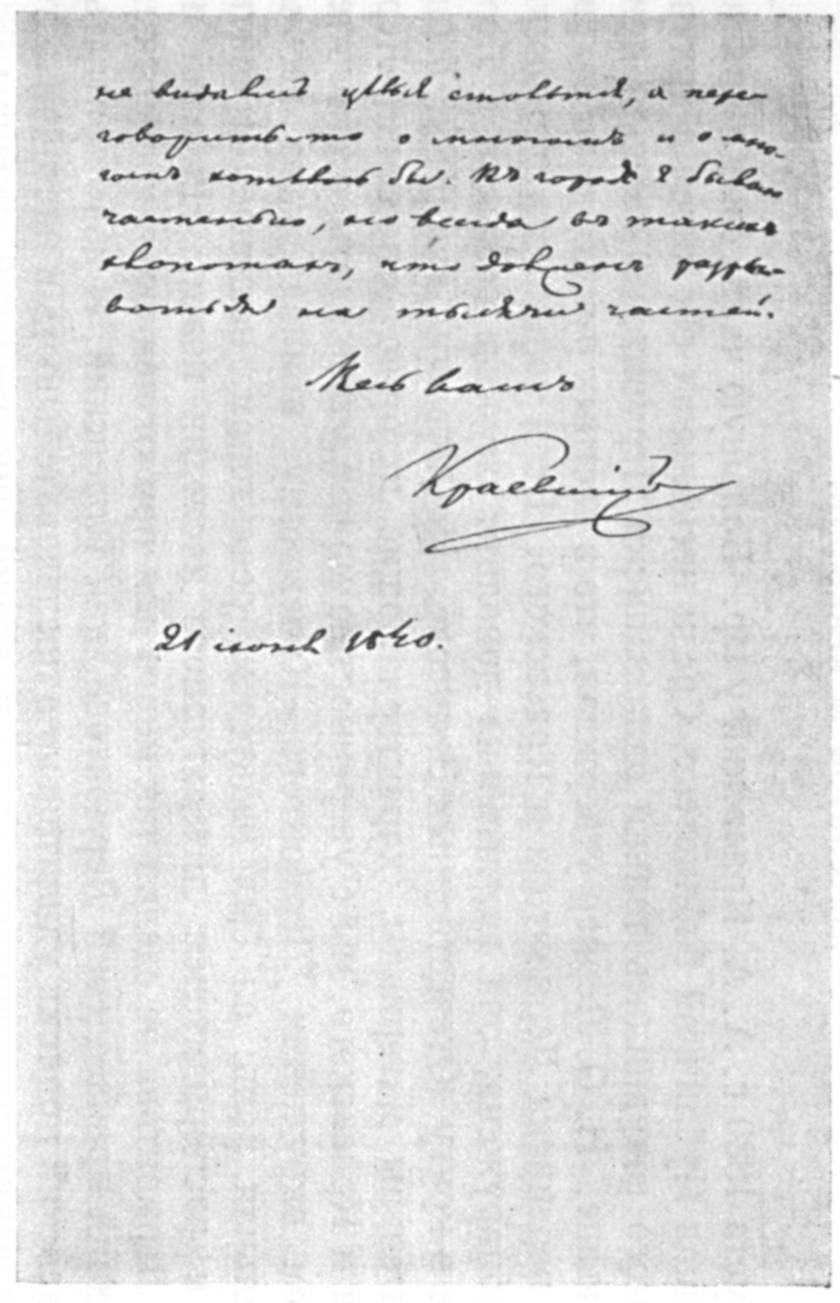 не видались цѣлыя столѣтія, а пере-
говорить-то о многомъ и о мно-
гомъ хотѣлось бы. Въ городѣ я бываю
частенько, но всегда въ такихъ
хлопотахъ, что долженъ разры-
ваться на тысячи частей.
Весь вашъ
Краевскій
21 іюня 1840.